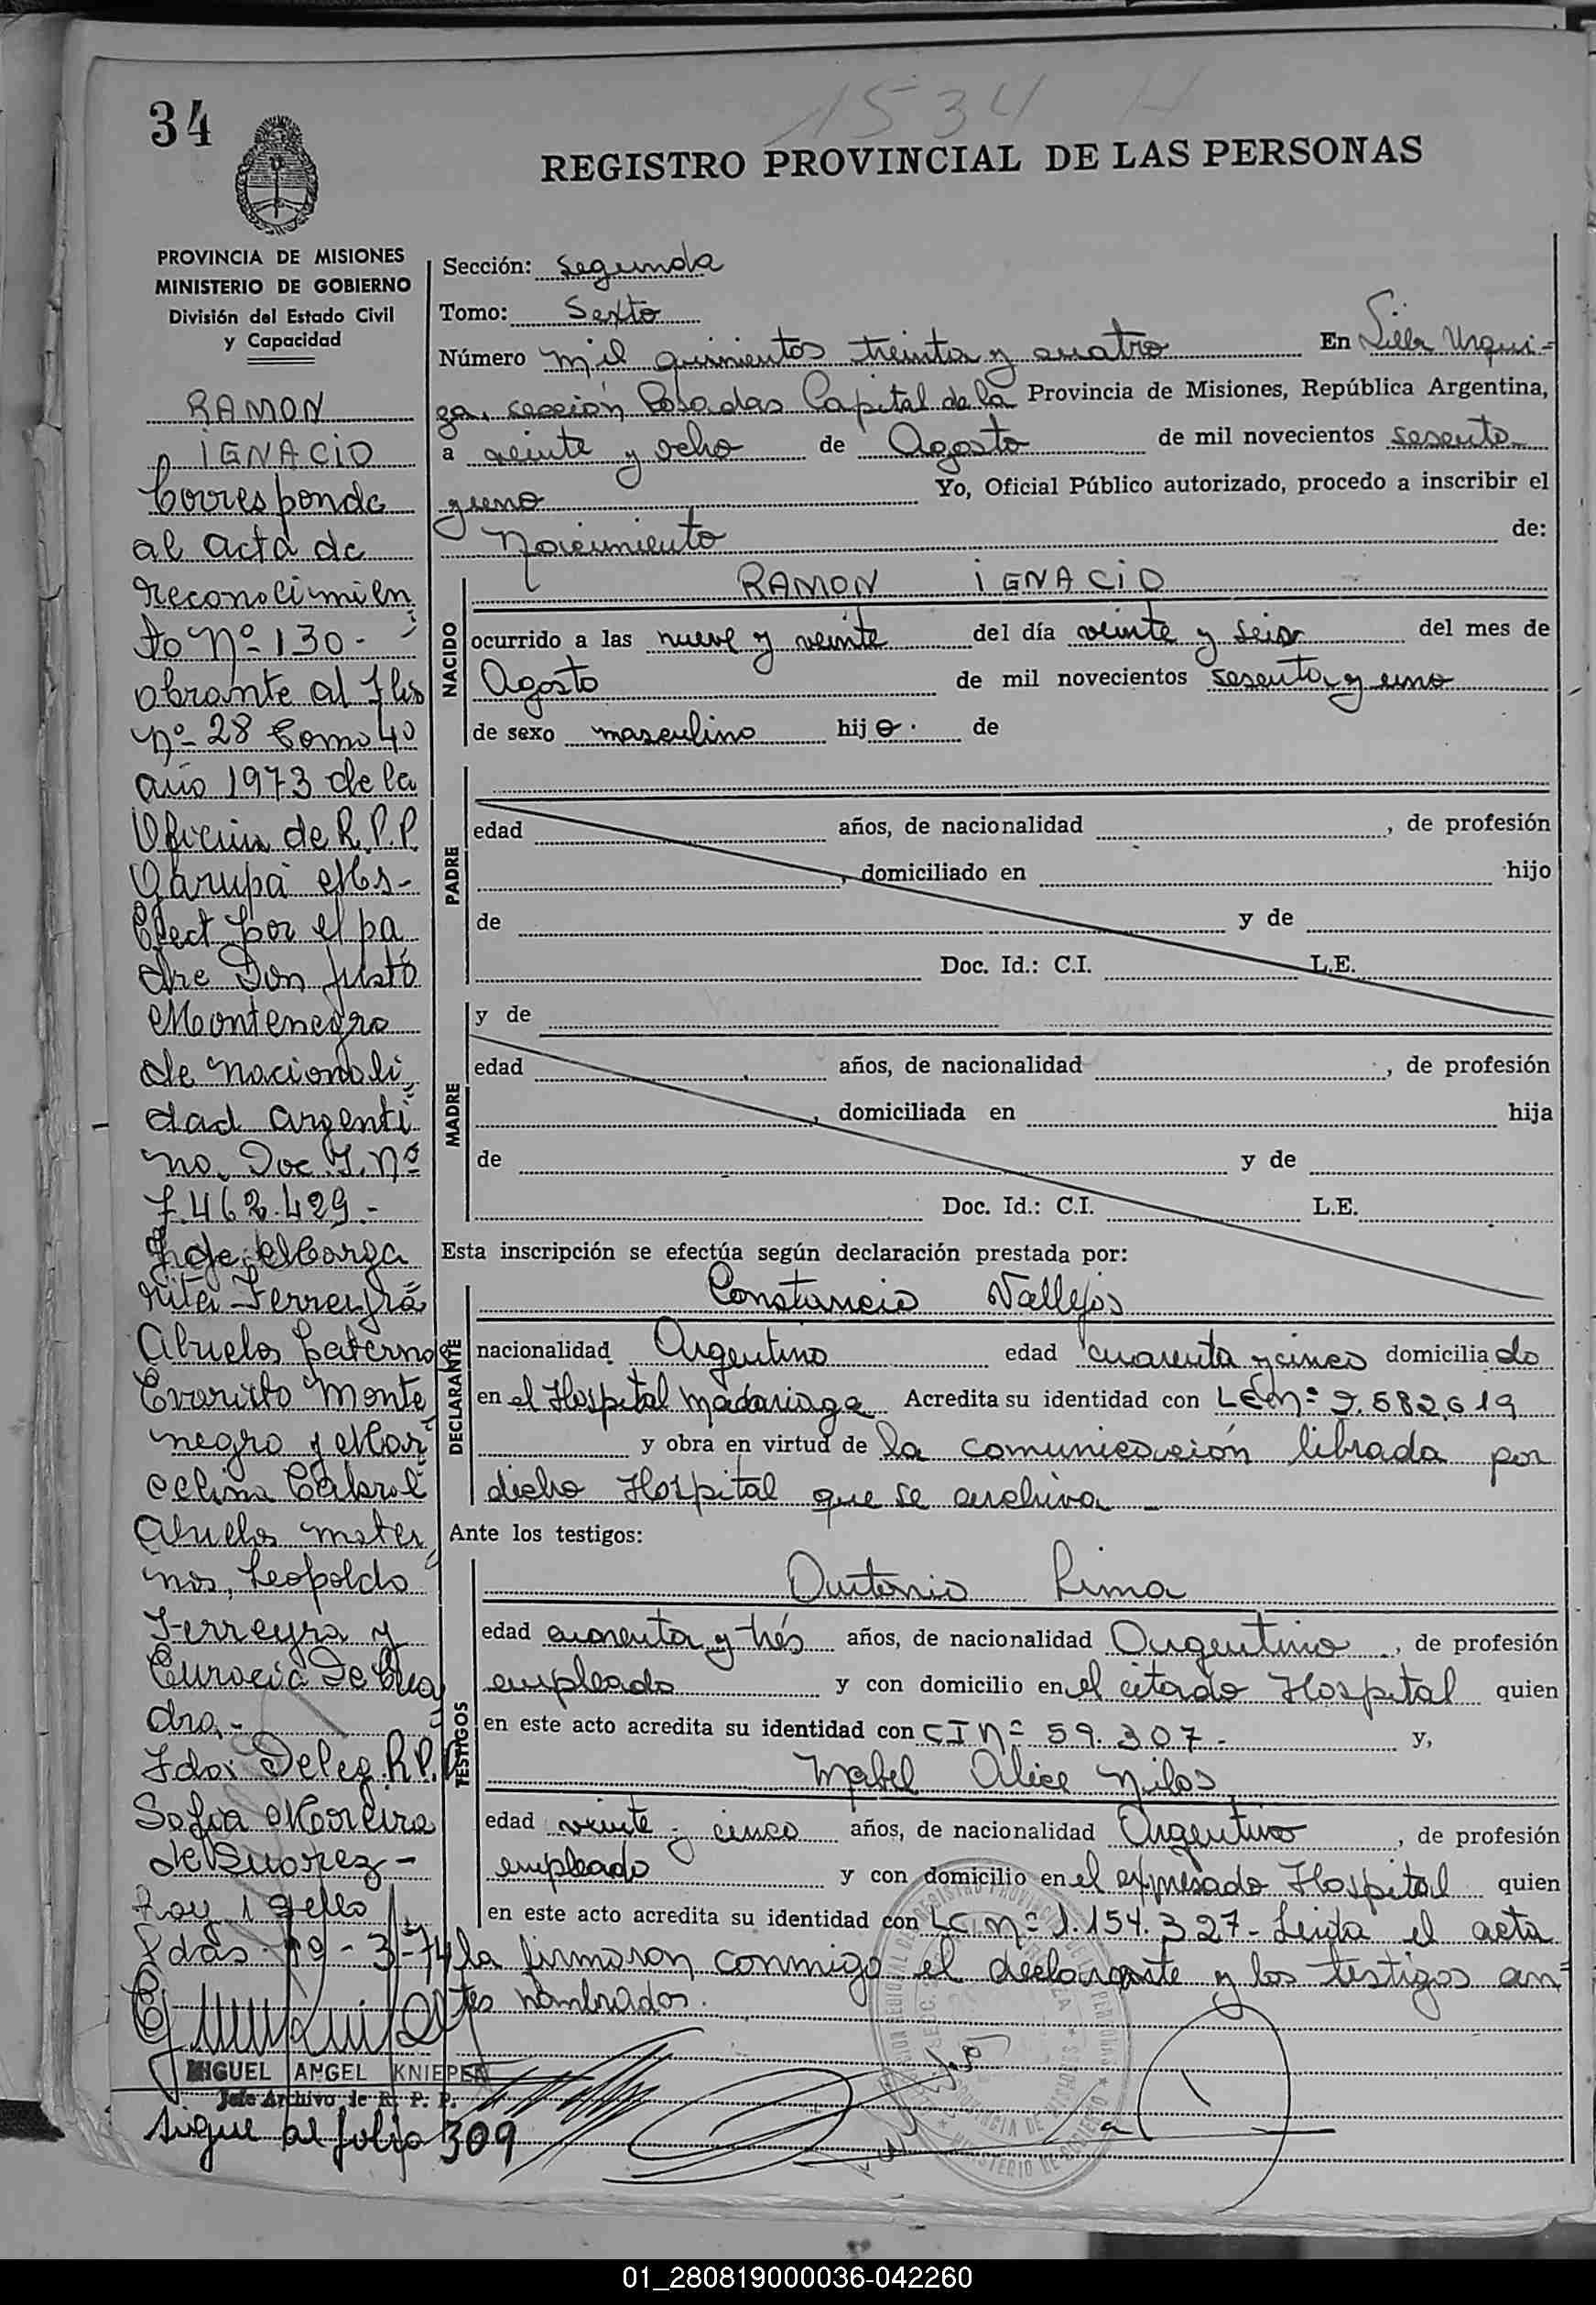 34
1534
REGISTRO PROVINCIAL DE LAS PERSONAS
PROVINCIA DE MISIONES
MINISTERIO DE GOBIERNO
División del Estado Civil
y Capacidad
RAMON
IGNACIO
Corresponde
al acta de
reconocimien
to Nº 130-
obrante al
Nº 28 Tomo 4º
año 1973 de la
Oficina de R.P.P.
Garupá Ms-
Efect por el pa
dre Don Justo
Montenegro
de nacionali
dad argenti
no, Doc. I. Nº
7.462.429.-
Marga
rita Ferreyra
Abuelos paternos
Evaristo Monte
negro y Mar
celina Cabral
Abuelos mater
nos, Leopoldo
Ferreyra y
De Cua
dra.-
Fdo: Deleg. R.P.P.
Sofia Moreira
de Suarez-
Hay 1 sello
Pdas. 19-3-74
MIGUEL ANGEL KNIEPER
Jefe Archivo de R. P. P.
Sigue al folio 309
Sección: Segunda
Tomo: Sexto
Número mil quinientos treinta y cuatro En Villa Urqui-
za, sección Posadas Capital de la Provincia de Misiones, República Argentina,
a veinte y ocho de Agosto de mil novecientos sesenta
y uno Yo, Oficial Público autorizado, procedo a inscribir el
Nacimiento de:
NACIDO
RAMON IGNACIO
ocurrido a las nueve y veinte del día veinte y seis del mes de
Agosto de mil novecientos sesenta y uno
de sexo masculino hijo. de
PADRE
edad años, de nacionalidad , de profesión
, domiciliado en hijo
de y de
Doc. Id.: C.I. L.E.
MADRE
y de
edad años, de nacionalidad , de profesión
, domiciliada en hija
de y de
Doc. Id.: C.I. L.E.
Esta inscripción se efectúa según declaración prestada por:
DECLARANTE
Constancio Vallejos
nacionalidad Argentino edad cuarenta y cinco domiciliado
en el Hospital Madariaga Acredita su identidad con LE Nº 2.582.619
y obra en virtud de la comunicación librada por
dicho Hospital que se archiva-
Ante los testigos:
TESTIGOS
Antonio Lima
edad cuarenta y trés años, de nacionalidad Argentino, de profesión
empleado y con domicilio en el citado Hospital quien
en este acto acredita su identidad con CI Nº 59.307- y,
Mabel Alice
edad veinte y cinco años, de nacionalidad Argentina, de profesión
empleada y con domicilio en el expresado Hospital quien
en este acto acredita su identidad con LC Nº 1.154.327- Leída el acta
la firmaron conmigo el declarante y los testigos an-
tes nombrados.
01_280819000036-042260